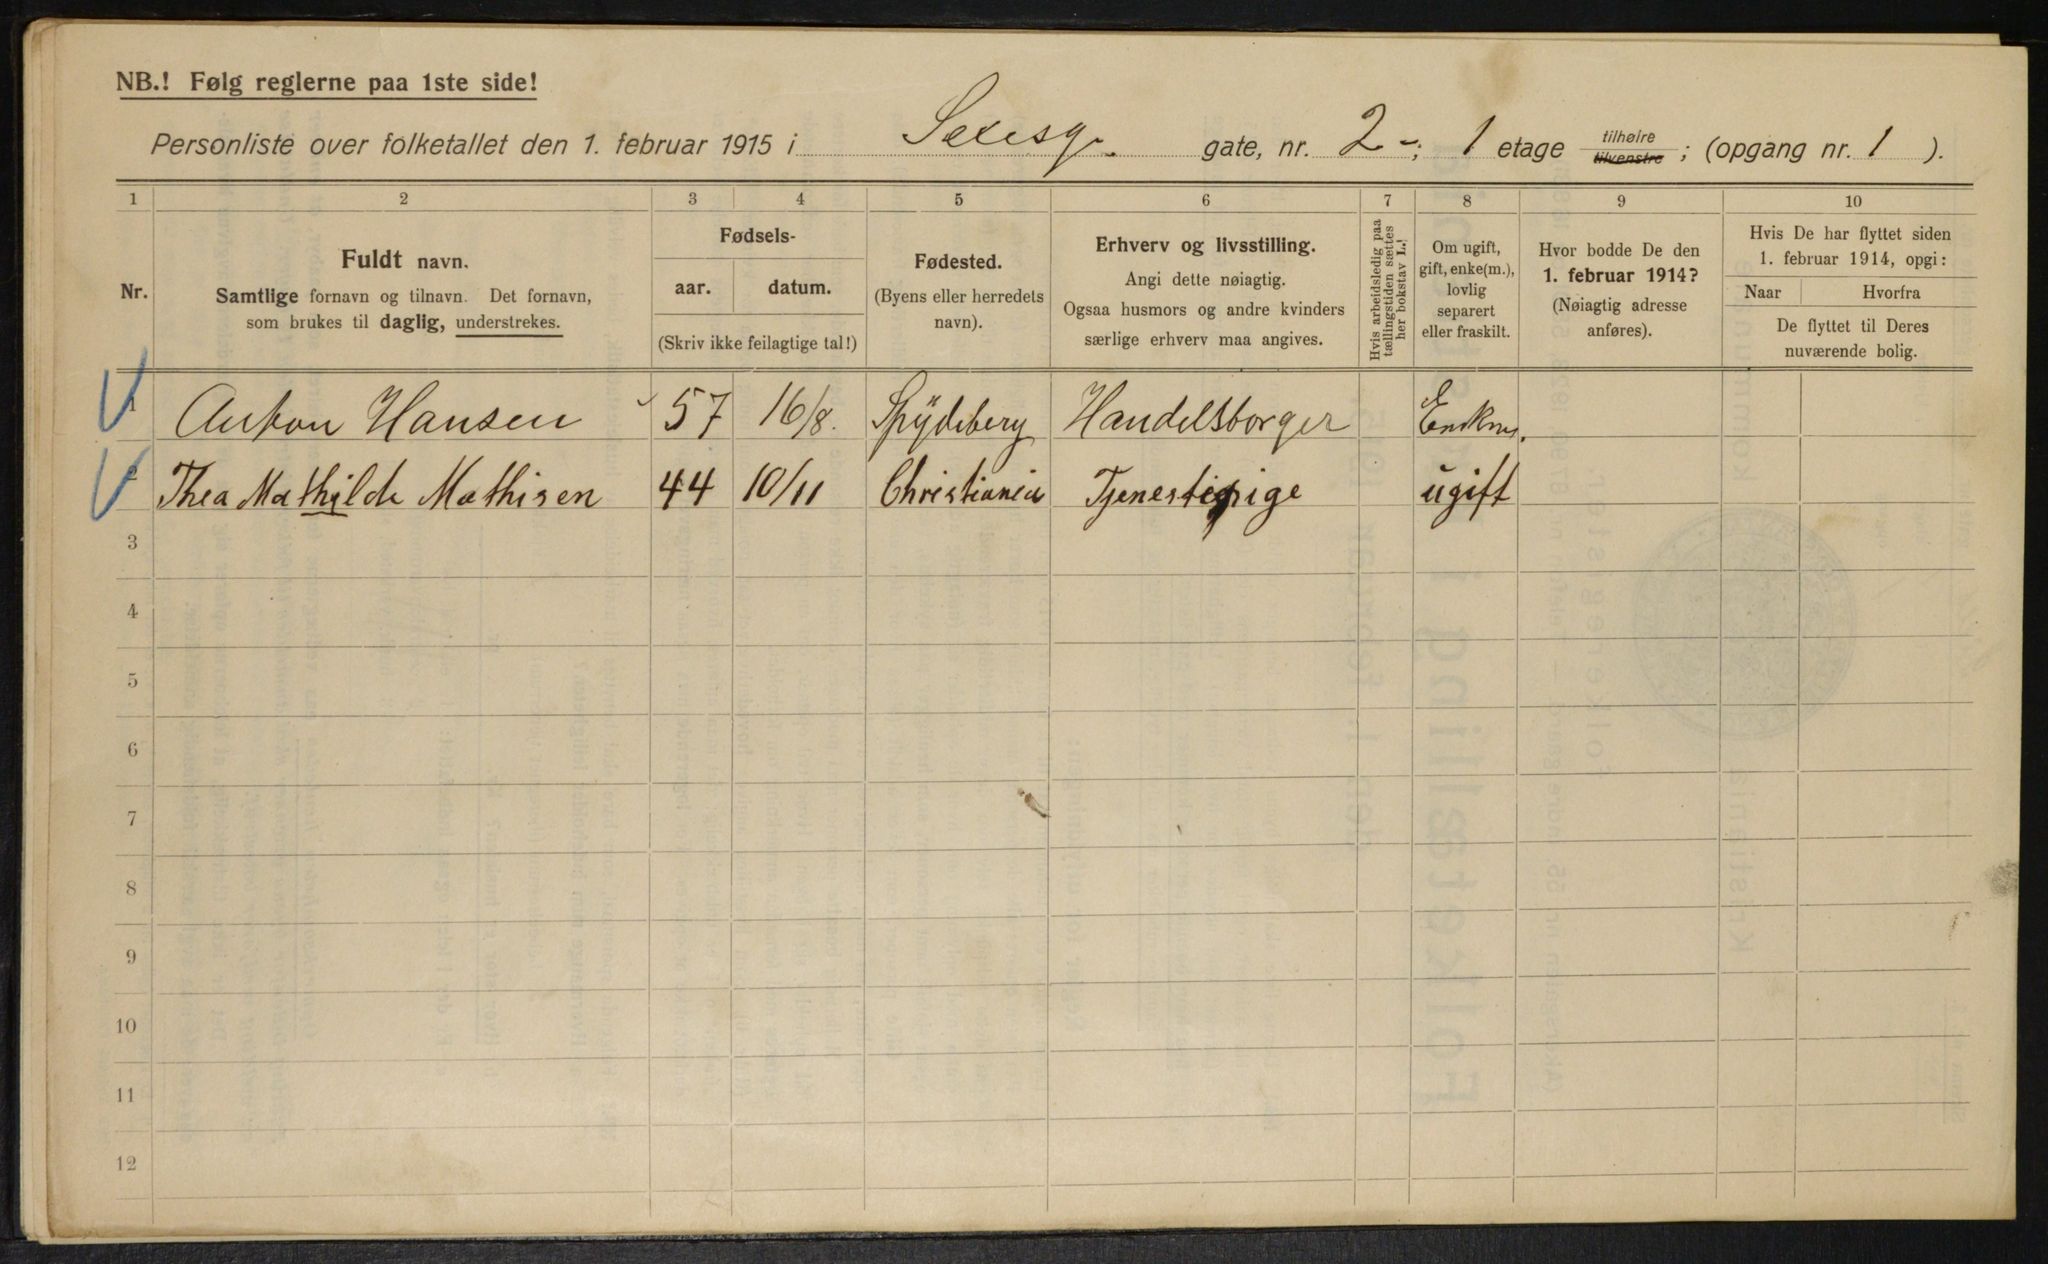 NB.! Følg reglerne paa 1ste side!
Personliste over folketallet den 1. februar 1915 i Sexesg. gate, nr. 2 -; 1 etage tilhøire tilvenstre ; (opgang nr. 1 ).
1 2 3 4 5 6 7 8 9 10
Nr.
Fuldt navn.
Samtlige fornavn og tilnavn. Det fornavn,
som brukes til daglig, understrekes.
Fødsels-
aar. datum.
(Skriv ikke feilagtige tal!)
Fødested.
(Byens eller herredets
navn).
Erhverv og livsstilling.
Angi dette nøiagtig.
Ogsaa husmors og andre kvinders
særlige erhverv maa angives.
Hvis arbeidsledig paa
tællingstiden sættes
her bokstav L.!
Om ugift,
gift, enke(m.),
lovlig
separert
eller fraskilt.
Hvor bodde De den
1. februar 1914?
(Nøiagtig adresse
anføres).
Hvis De har flyttet siden
1. februar 1914, opgi:
Naar Hvorfra
De flyttet til Deres
nuværende bolig.
1 Anton Hansen 57 16/8. Spydeberg Handelsborger Enkm.
2 Thea Mathilde Mathisen 44 10/11 Christiania Tjenestepige ugift
3
4
5
6
7
8
9
10
11
12